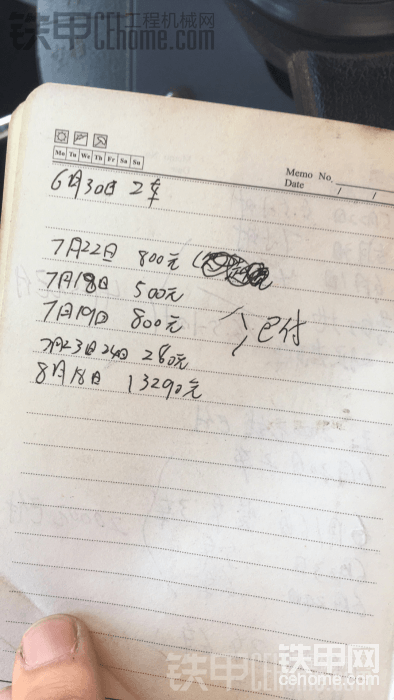 铁甲工程机械网
CEhome.com
Mo Tu We Th Fr Sa Su
Memo No.
Date / /
6月30日 2车
7月22日 800元
7月18日 500元
7月19日 800元
已付
7月23日24日 2860元
8月18日 13290元
铁甲网
cehome.com
铁甲CEhome.com